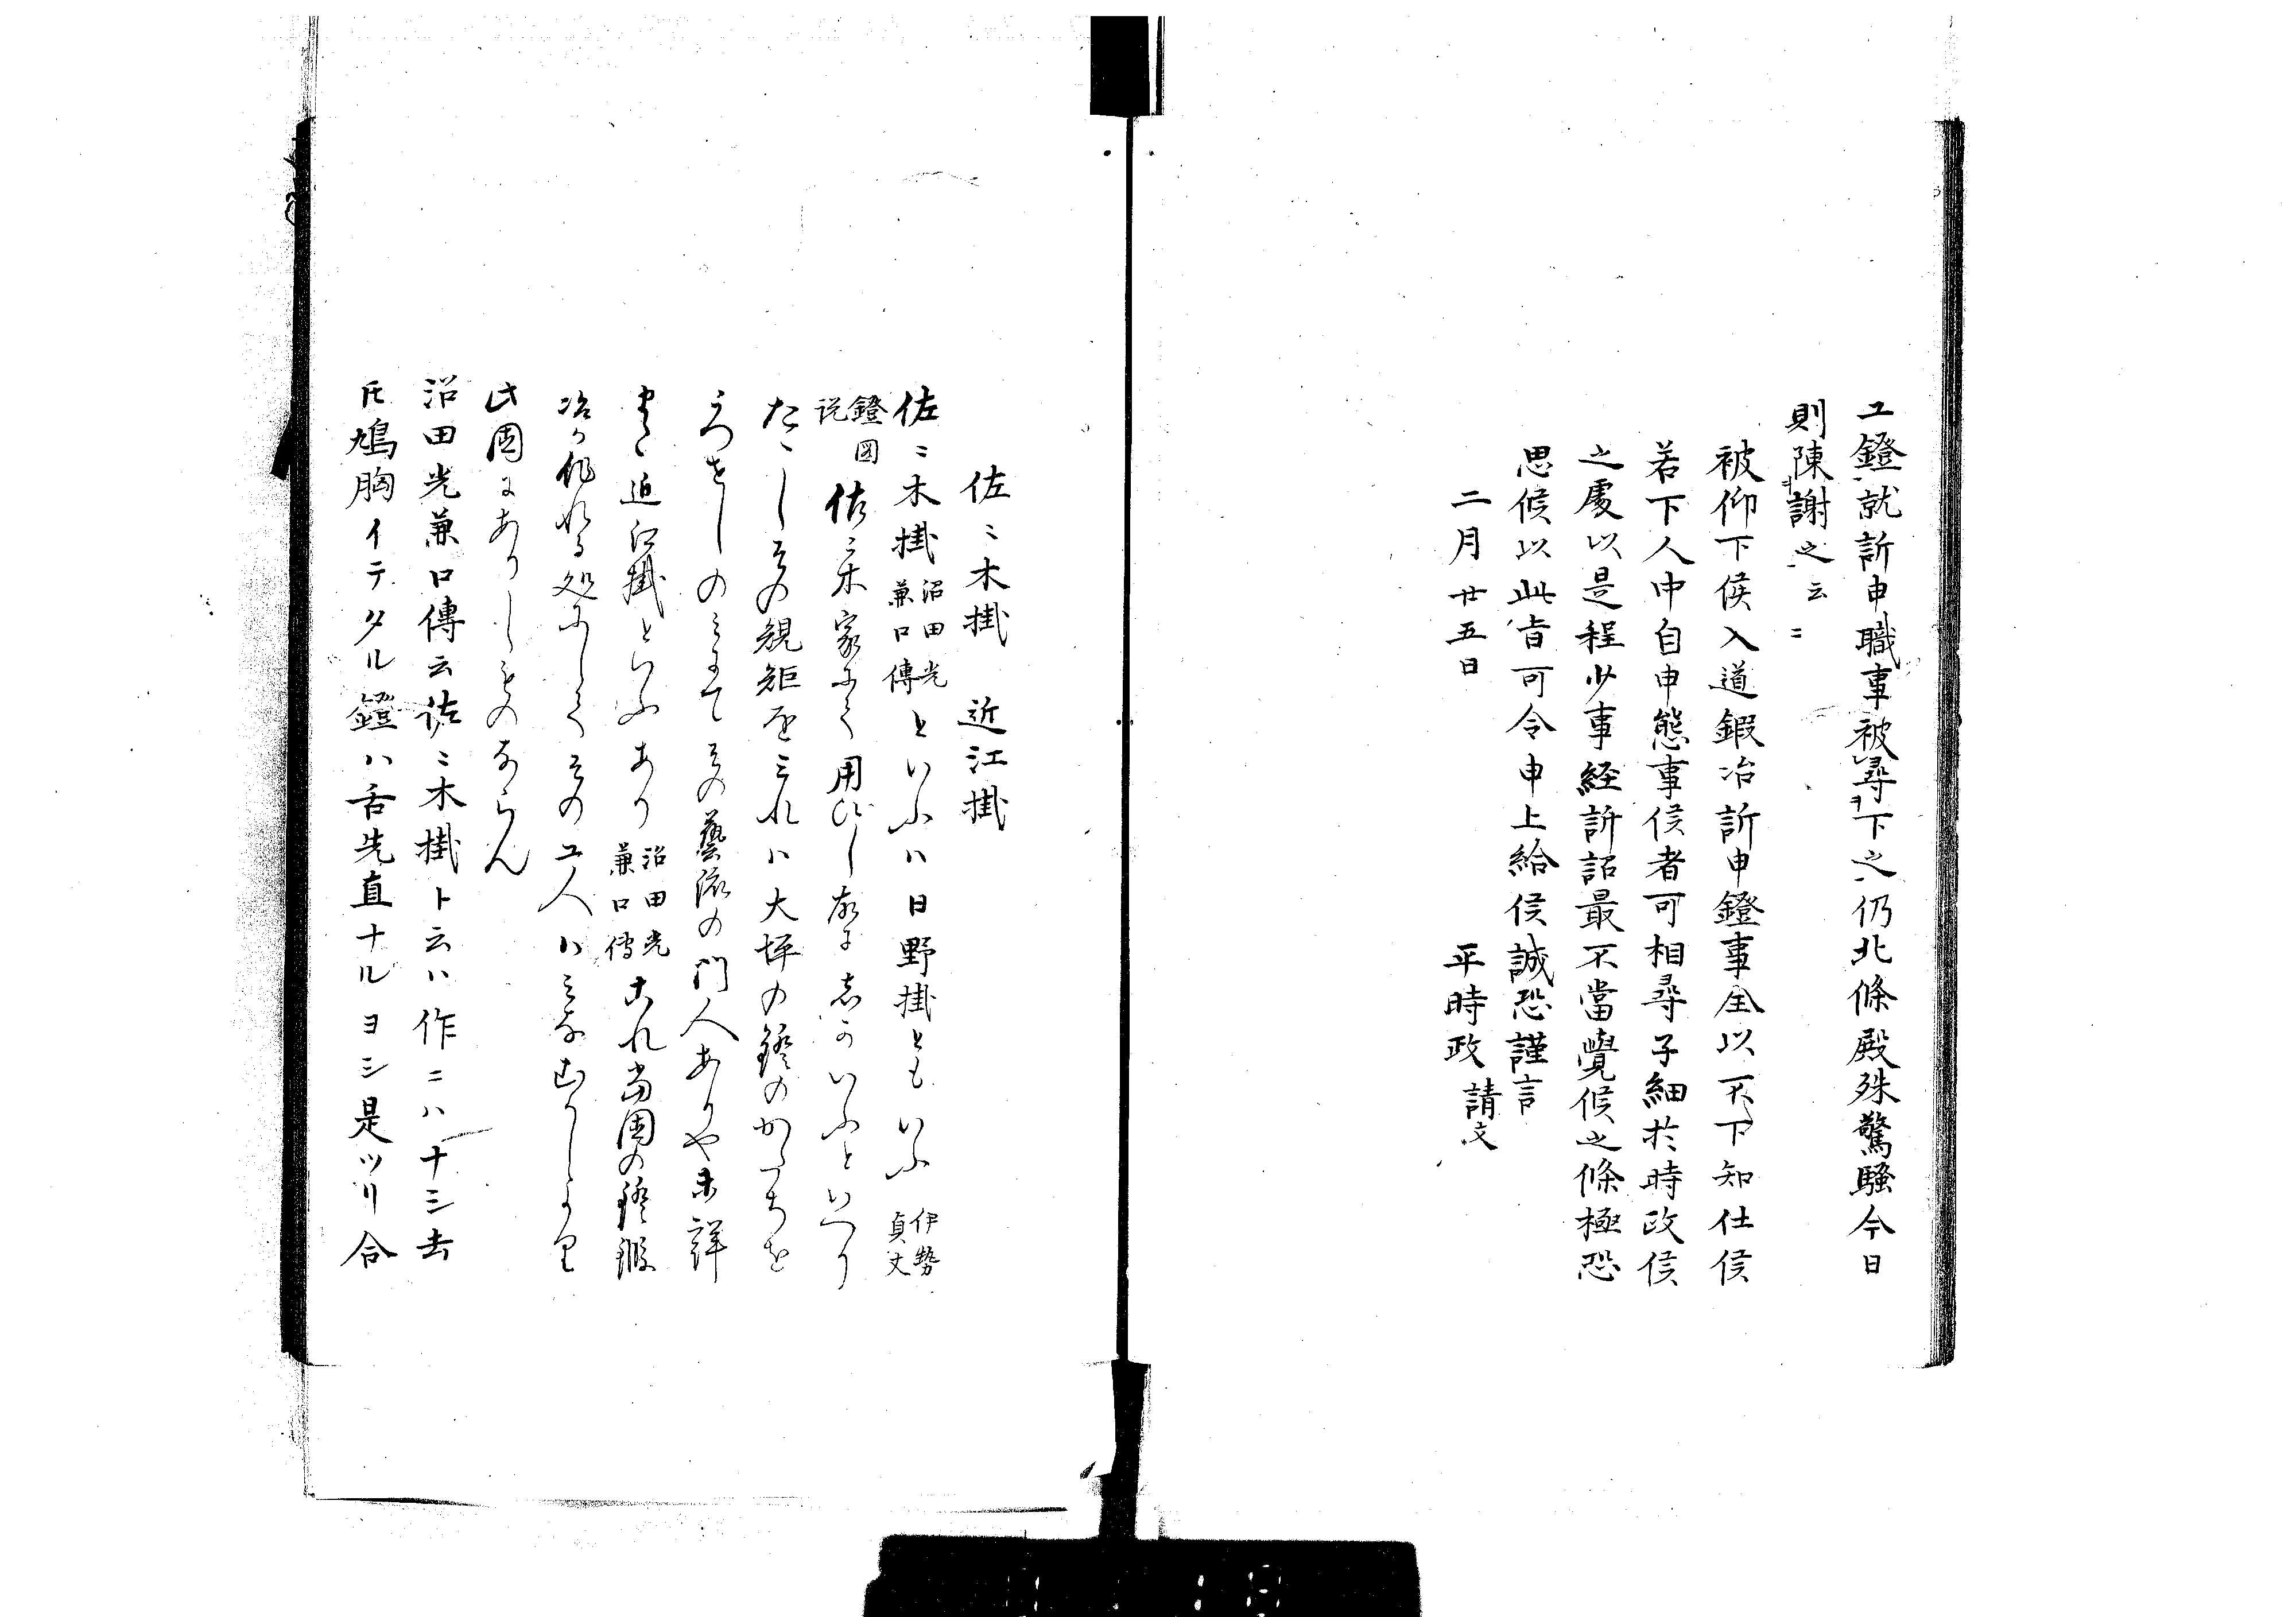 工鐙就訴申職事被尋下之仍北條殿殊驚騒今日
則陳謝之云〻
被仰下候入道鍛冶訴申鐙事全以不下知仕候
若下人中自申態事候者可相尋子細於時政候
之處以是程少事経訴詔最不當覺候之條極恐
思候以此旨可令申上給候誠恐謹言
二月廿五日
平時政請文
佐〻木掛 近江掛
佐〻木掛 沼田光兼口傳 といふハ日野掛ともいふ 伊勢貞丈
鐙図説 佐〻木家にて用ひし故にしかいふといへり
たゝしその規矩をみれハ大坪の鐙のかたちを
うつせしのみにてその藝流の門人ありや未詳
また近江掛といふあり 沼田光兼口傳 これ当国の鐙鍛
冶の作れる処にしてその工人ハみなむかしより
此国にありしものならん
沼田光兼口傳云佐〻木掛ト云ハ作ニハナシ去
氏鳩胸イテタル鐙ハ舌先直ナルヨシ是ツリ合